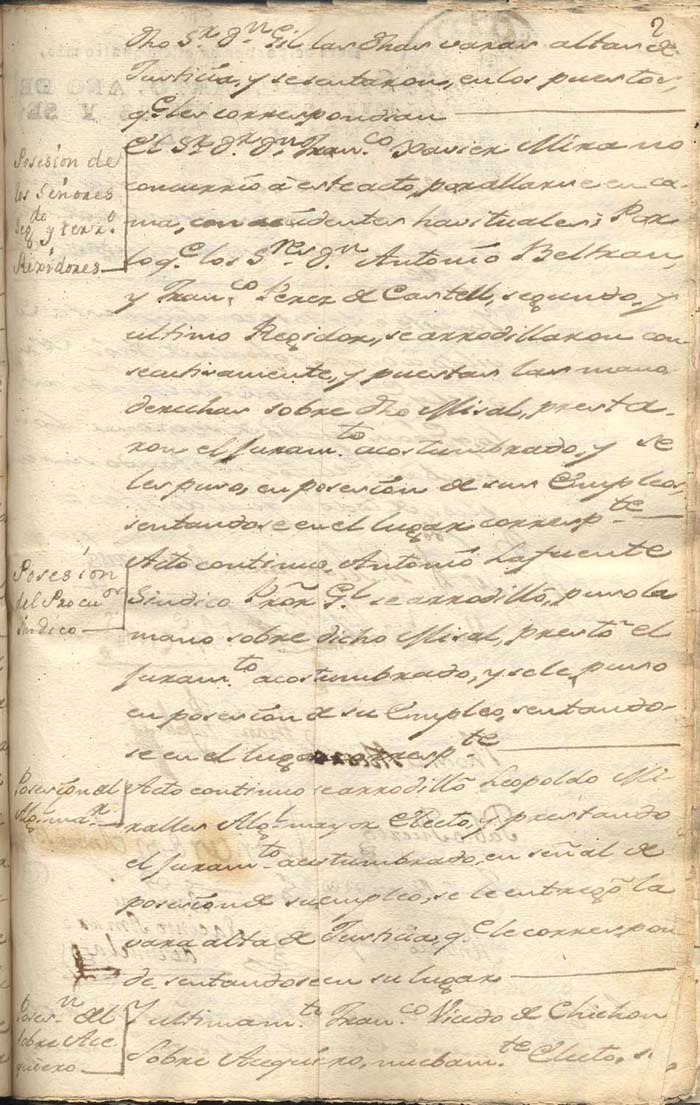 2
dho Sr. Dn. Gil las dhas varas altas de
Justicia, y se sentaron, en los puestos,
qe. les correspondian
Posesión de
los Señores
Segdo. y terzo.
Rexidores
El Sr. Dr. Dn. Franco. Xavier Mira no
concurrió â este acto, por allarse en ca-
ma, con accidentes havituales; Por
lo qe. los Sres. Dn. Antonio Beltran,
y Franco. Perez de Castell, segundo, y
ultimo Regidor, se arrodillaron con
secutivamente, y puestas las manos
derechas sobre dho Misal, presta-
ron el juramto. acostumbrado, y se
les puso, en posesión de sus Empleos,
sentandose en el lugar correspte.
Posesión
del Procuor.
Sindico
Acto continuo, Antonio Lafuente
Sindico Pror. Gl. se arrodilló, puso la
mano sobre dicho Misal, prestó el
juramto. acostumbrado, y se le puso
en posesión de su Empleo, sentando-
se en el lugar correspte.
Posesión del
Algl. maxr.
Acto continuo se arrodilló Leopoldo Mi-
ralles Algl. mayor Electo, y prestando
el juramto. acostumbrado, en señal de
posesión de su empleo, se le entregó la
vara alta de Justicia, qe. le correspon
de sentandose en su lugar
Posesn. del
Sobre Ace
quiero
Y ultimamte. Franco. Vicedo de Chichon
Sobre Acequiero, nuebamte. Electo, s